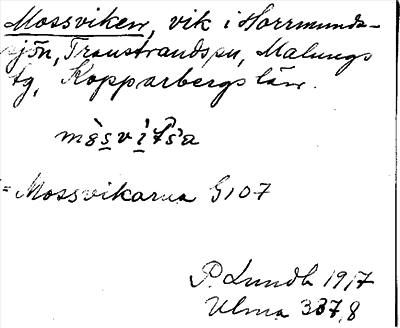 Mossviken, vik i Horrmunds-
sjön, Transtrands sn, Malungs
tg, Kopparbergs län.
= Mossvikarna G107
P. Lundh 1917
Ulma 337,8